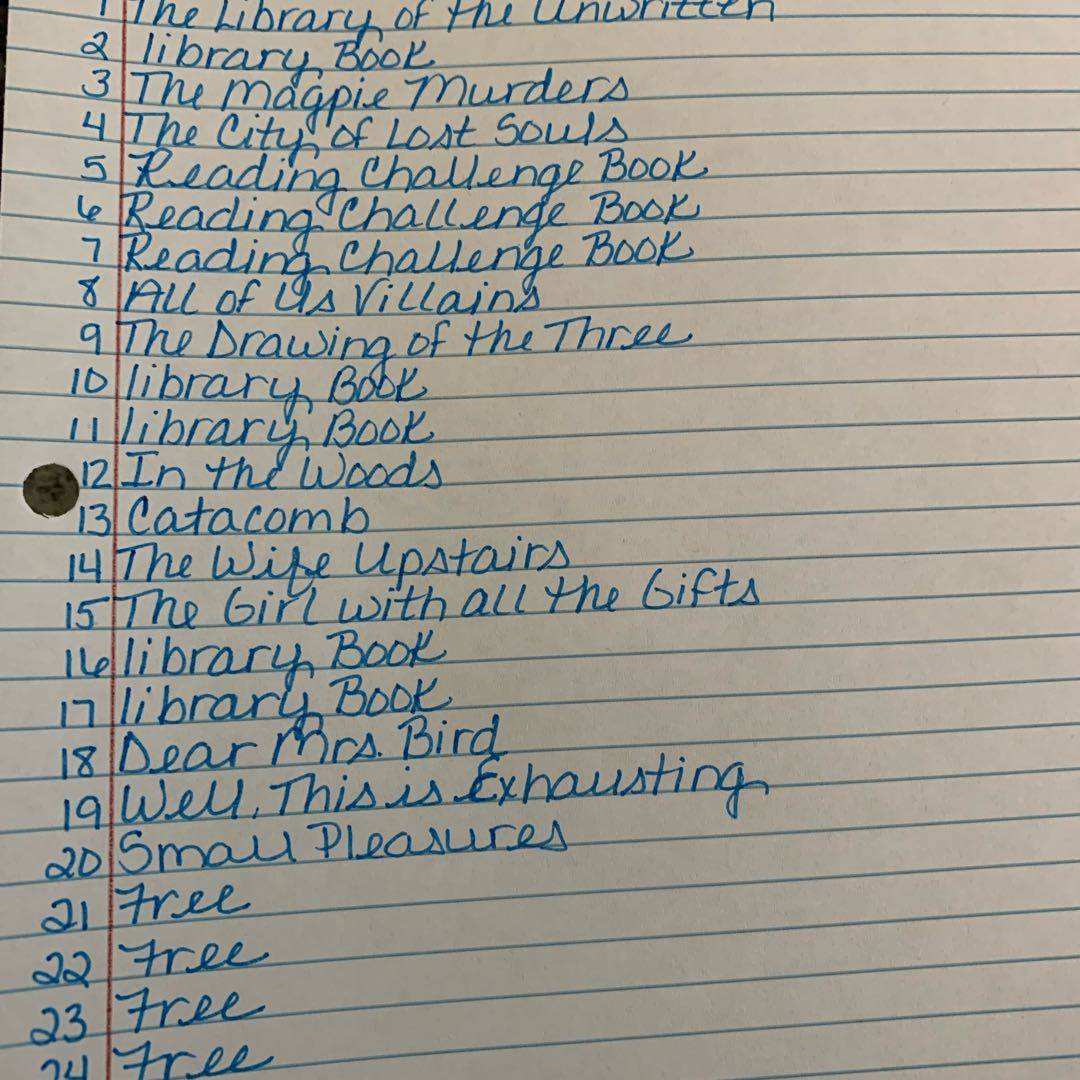 1 The Library of the Unwritten
2 library Book
3 The Magpie Murders
4 The City of Lost Souls
5 Reading Challenge Book
6 Reading Challenge Book
7 Reading Challenge Book
8 All of Us Villains
9 The Drawing of the Three
10 library Book
11 library Book
12 In the Woods
13 Catacomb
14 The Wife Upstairs
15 The Girl with all the Gifts
16 library Book
17 library Book
18 Dear Mrs. Bird
19 Well, This is Exhausting
20 Small Pleasures
21 Free
22 Free
23 Free
24 Free